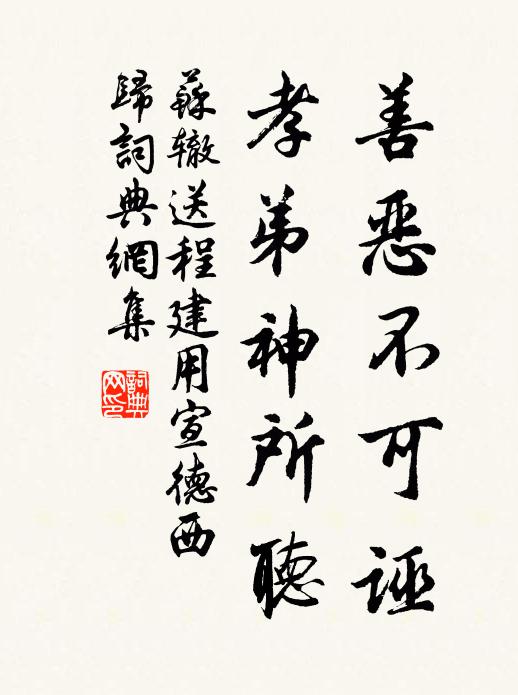 善惡不可誣
孝弟神所聽
蘇辙送程建用宣德西
歸詞典網集
詞典网印